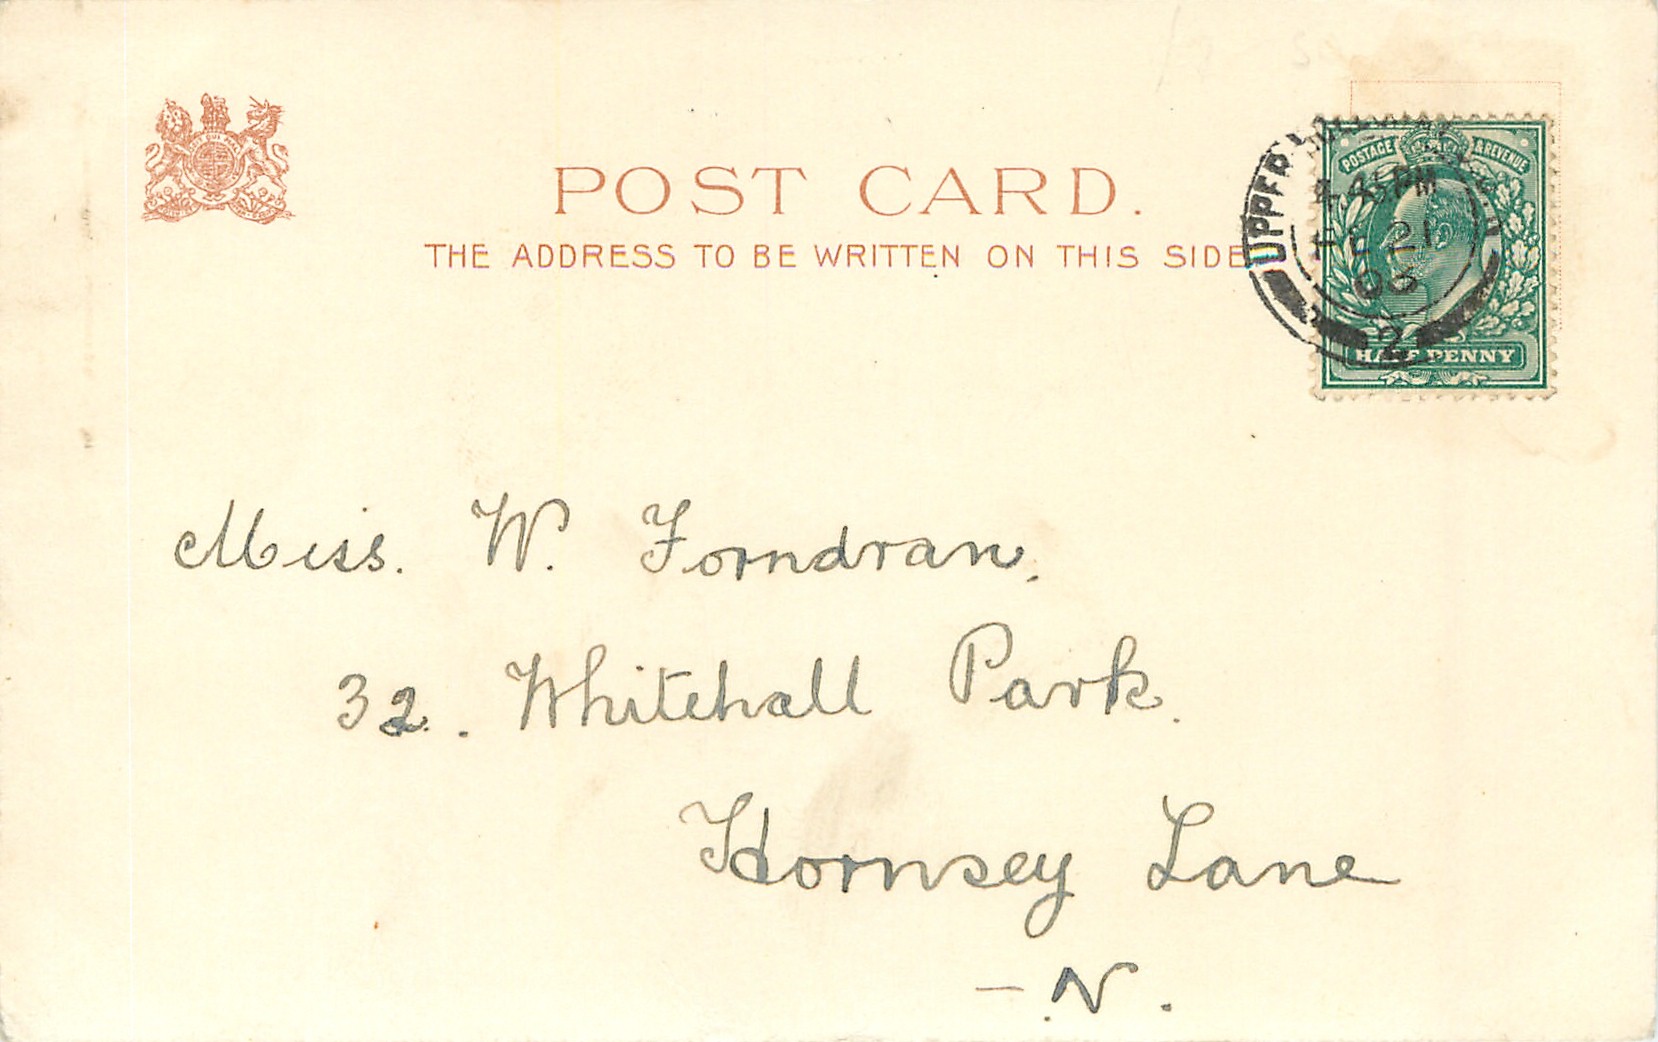 POST CARD.
THE ADDRESS TO BE WRITTEN ON THIS SIDE
POSTAGE & REVENUE
UPPER
PM
FE 21
03
2
HALF PENNY
Miss. W. Forndran.
32. Whitehall Park.
Hornsey Lane
- N.